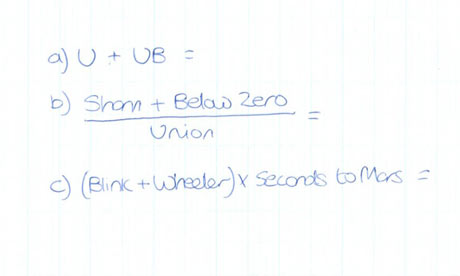 a) U + UB =
b) Sham + Below Zero
Union =
c) (Blink + Wheeler) x Seconds to Mars =